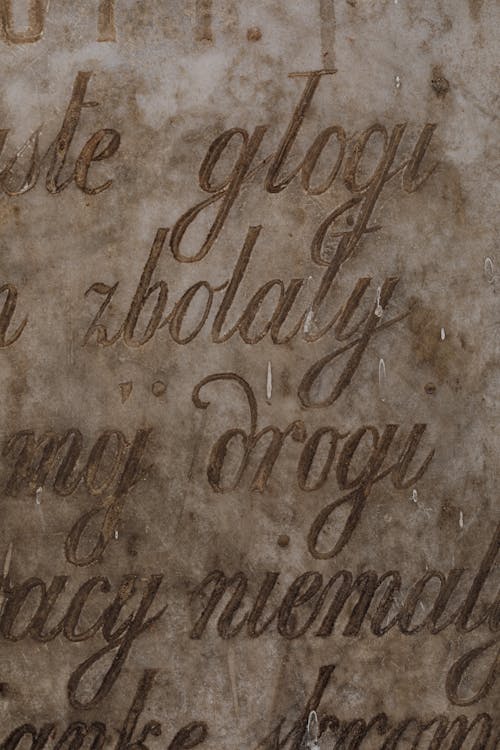 ste głogi
zbolały
mój drogi
acy niemały
anke skrom